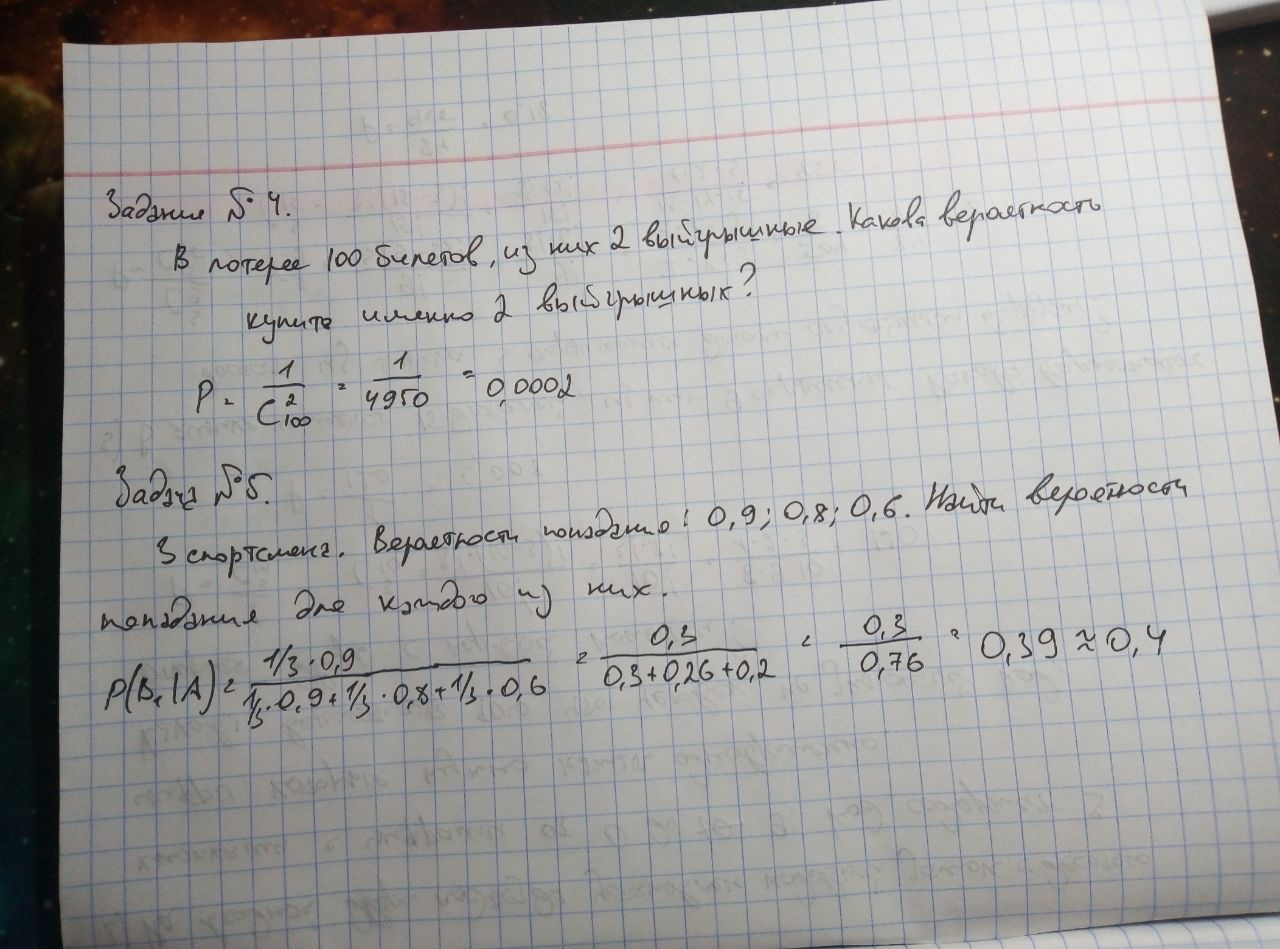 Задание № 4.
В лотерее 100 билетов, из них 2 выйгрышные. Какова вероятность
купить именно 2 выйгрышных?
P = 1/C²₁₀₀ = 1/4950 = 0,0002
Задача № 5.
3 спортсмена. Вероятности попадания: 0,9; 0,8; 0,6. Найти вероятности
попадания для каждого из них.
P(B₁|A) = (1/3 · 0,9)/(1/3 · 0,9 + 1/3 · 0,8 + 1/3 · 0,6) = 0,3/(0,3+0,26+0,2) = 0,3/0,76 = 0,39 ≈ 0,4